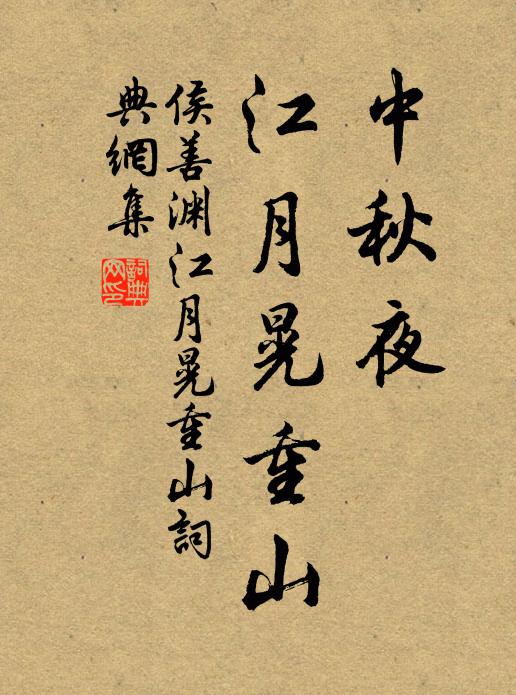 中秋夜
江月晃重山
侯善渊江月晃重山詞
典網集
詞典網印